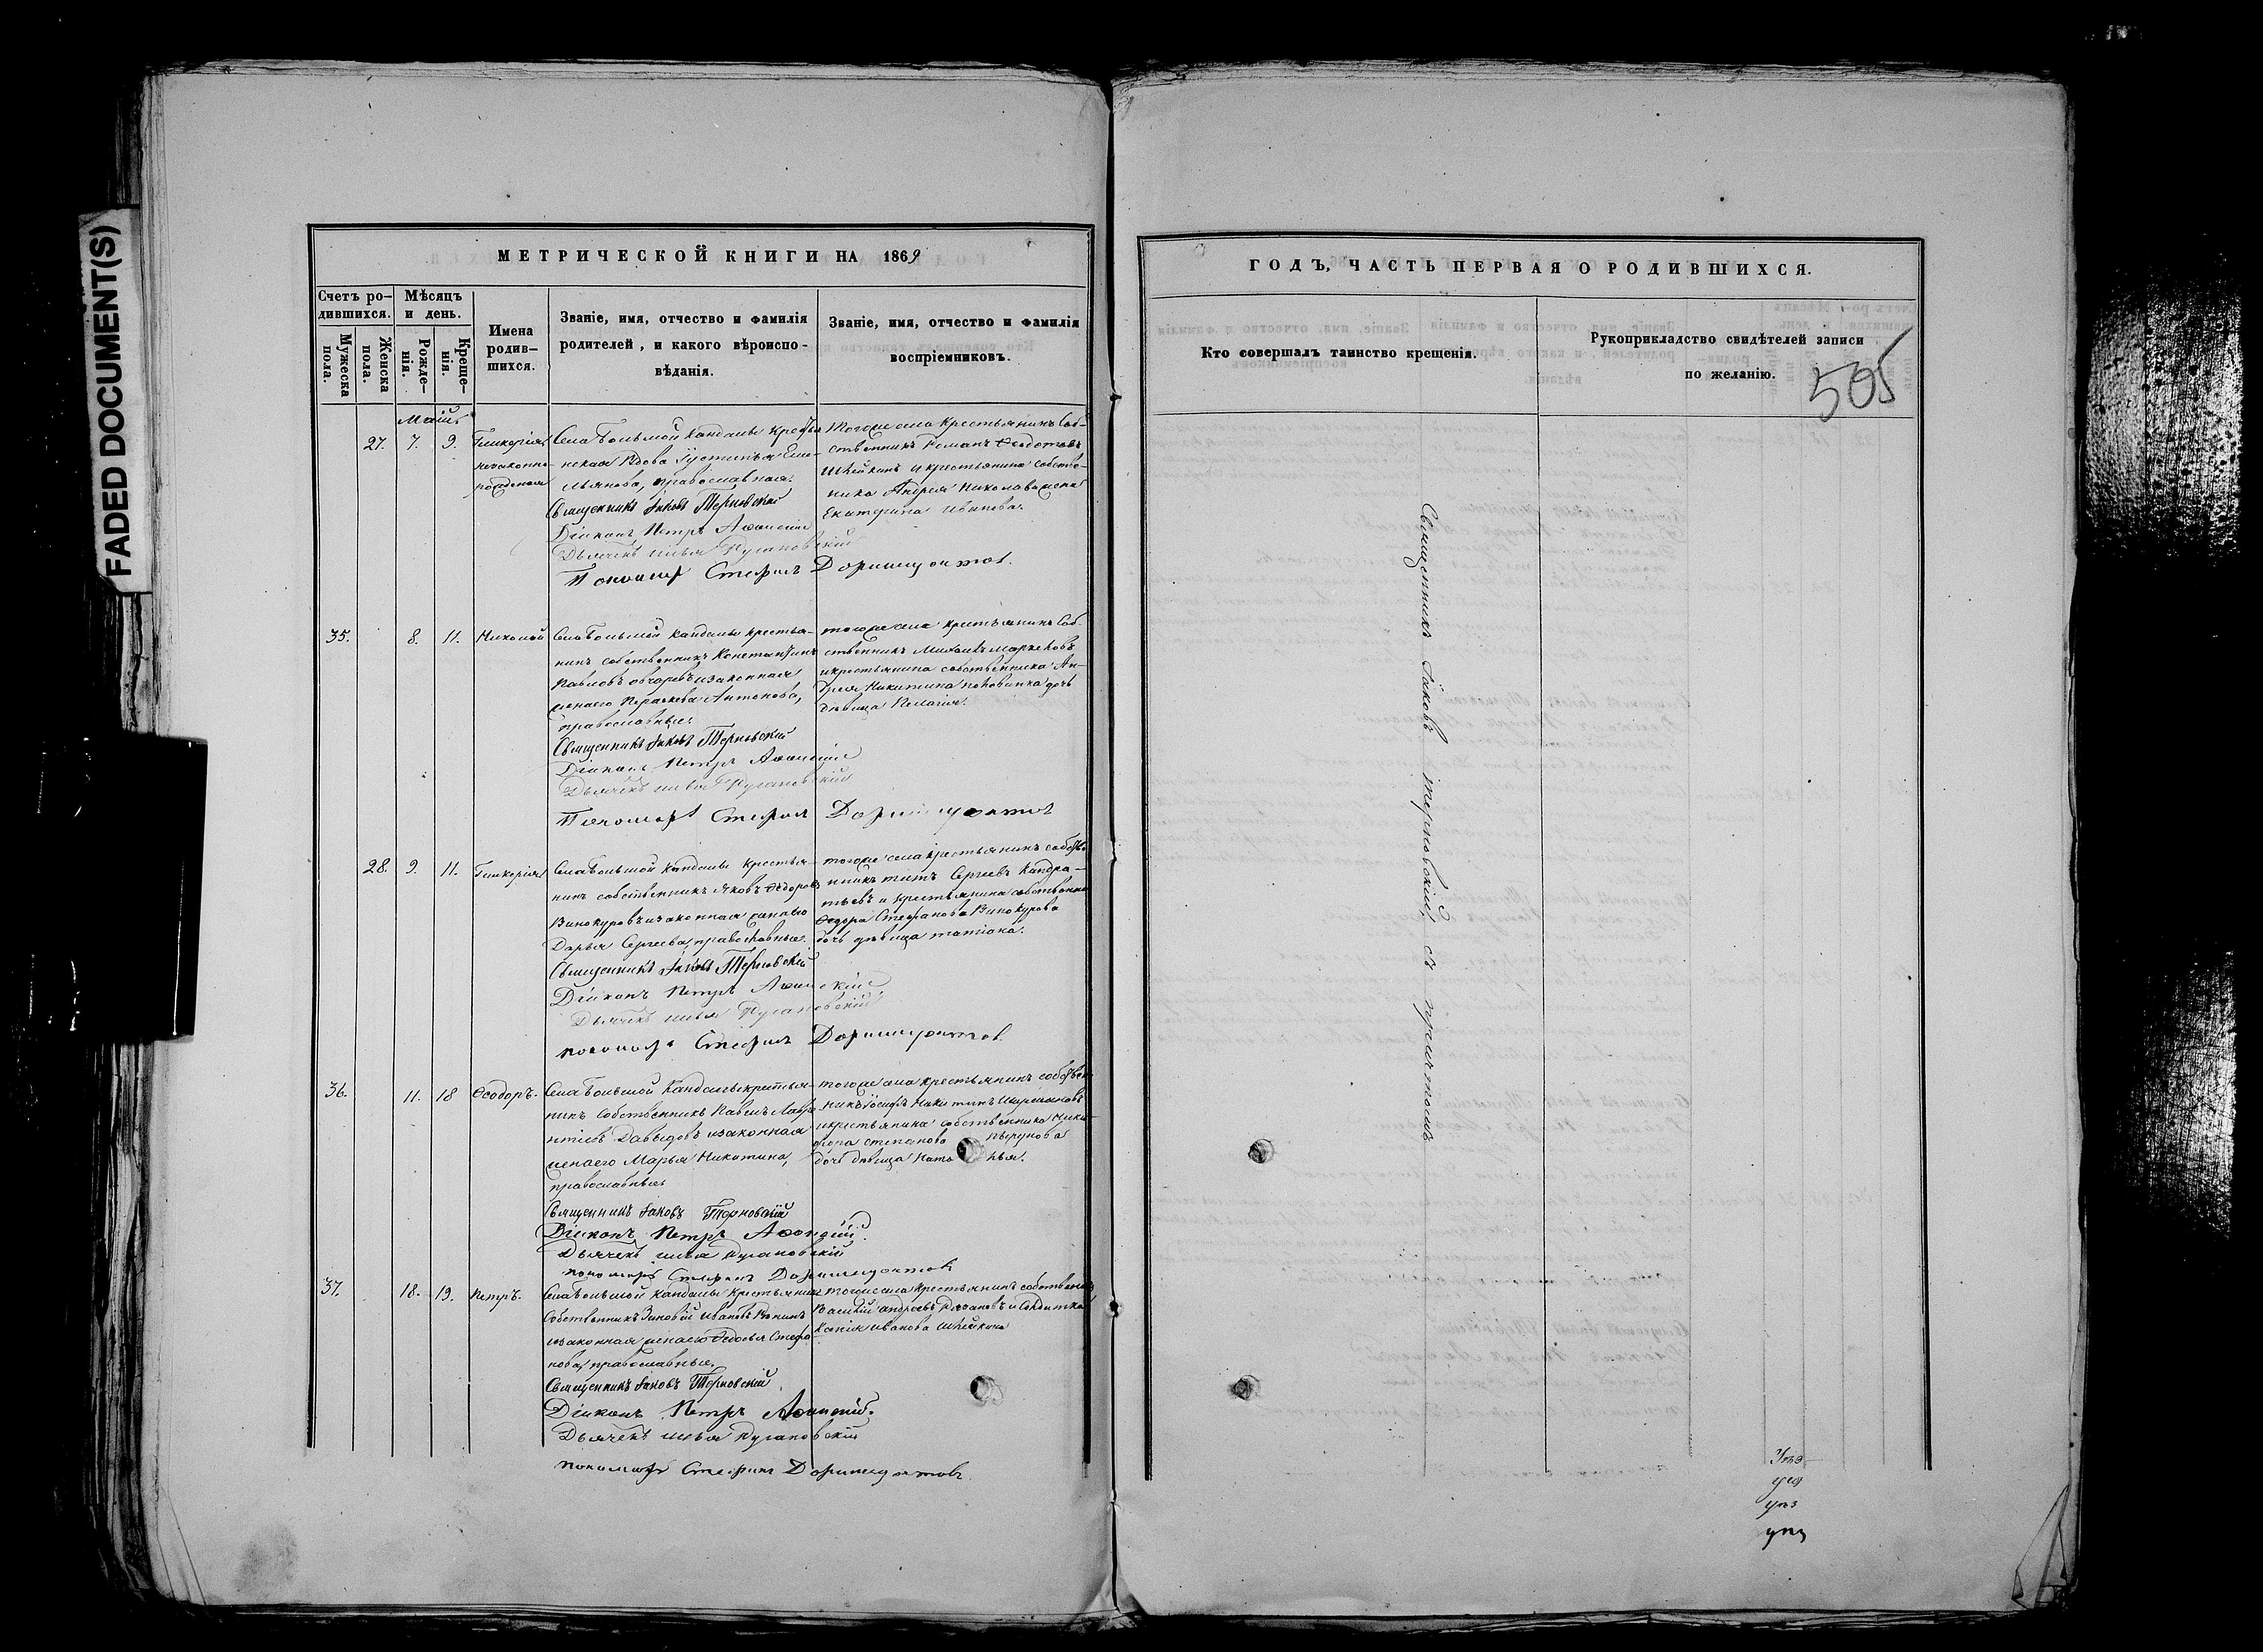 FADED DOCUMENT(S)
МЕТРИЧЕСКОЙ КНИГИ НА 1869
Счетъ ро-
дившихся.
Мѣсяцъ
и день.
Мужеска
пола.
Женска
пола.
Рожде-
нія.
Креще-
нія.
Имена
родив-
шихся.
Званіе, имя, отчество и фамилія
родителей, и какого вѣроиспо-
вѣданія.
Званіе, имя, отчество и фамилія
воспріемниковъ.
Маій
27. 7. 9. Гликерія
незаконно-
рожденная
Села Большой Кандалы крестья
нская Вдова Іустинья Еме-
льянова, православная.
Священникъ Іаковъ Терновскій
Діаконъ Петръ
Дьячекъ Илья
Пономарь Стефанъ Доримедонтов.
Тогоже села крестьянинъ Соб-
ственникъ Романъ Ѳедотовъ
Шлейкинъ и крестьянина собстве-
нника Андрея Николаева жена
Екатерина Иванова.
35. 8. 11. Николай
Села Большой Кандалы крестья-
нинъ собственникъ Константинъ
Павловъ Овчаровъ и законная
жена его Параскева Антонова,
православные.
Священникъ Іаковъ Терновскій
Діаконъ Петръ
Дьячекъ Илья
Пономарь Стефан Доримедонтов
тогоже села крестьянинъ Соб-
ственникъ Михаилъ
и крестьянина собственника Ан-
дрея Никитина дочь
дѣвица Пелагія.
28. 9. 11. Гликерія
Села Большой Кандалы крестья-
нинъ собственникъ Яковъ Ѳедоровъ
Винокуровъ и законная жена его
Дарья Сергеева, православные.
Священникъ Іаковъ Терновскій
Діаконъ Петръ
Дьячекъ Илья
пономарь Стефанъ Доримедонтов
тогоже села крестьянинъ собстве
нникъ Титъ Сергеевъ Кандра-
тьевъ и крестьянина собственни
Ѳедора Стефанова Винокурова
дочь дѣвица Татіана.
36. 11. 18 Ѳеодоръ.
Села Большой Кандалы крестья-
нинъ Собственникъ Павелъ Лавре
нтіевъ Давыдовъ и законная
жена его Марья Никитина,
православные
Священникъ Іаковъ Терновскій
Діаконъ Петръ
Дьячекъ Илья
пономарь Стефанъ Доримедонтовъ
тогоже села крестьянинъ собствен
никъ Іосифъ Никитинъ
и крестьянина собственника Ники
фора Степанова
дочь дѣвица
37. 18. 19. Петръ.
Села Большой Кандалы крестьянинъ
Собственникъ Зиновій Ивановъ
и законная жена его Ѳедосья Стефа
нова, православные,
Священникъ Іаковъ Терновскій
Діаконъ Петръ
Дьячекъ Илья
пономарь Стефанъ Доримедонтовъ
тогоже села крестьянинъ собственникъ
Василій Андреевъ и
Ксенія Иванова Шлейкина
ГОДЪ, ЧАСТЬ ПЕРВАЯ О РОДИВШИХСЯ.
Кто совершалъ таинство крещенія.
Рукоприкладство свидѣтелей записи
по желанію.
505
Священникъ Іаковъ Терновскій, съ причтомъ